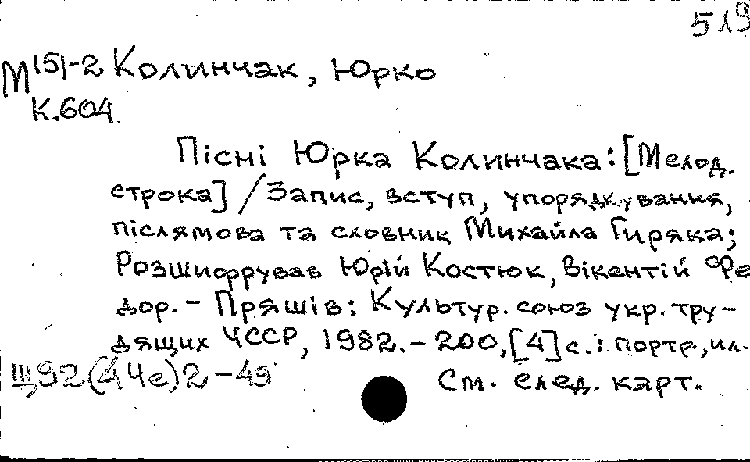 519
М151-2 Колинчак, Юрко
К.604.
Пісні Юрка Колинчака: [Мелод.
строка] / Запис, вступ, упорядкування,
післямова та словник Михайла Гиряка;
Розшифрував Юрій Костюк, Вікентій Фе
дор. - Пряшів: Культур. союз укр. тру-
дящих ЧССР, 1982. - 200, [4] с.: портр, ил.
Щ92(4Че)2-49
См. след. карт.